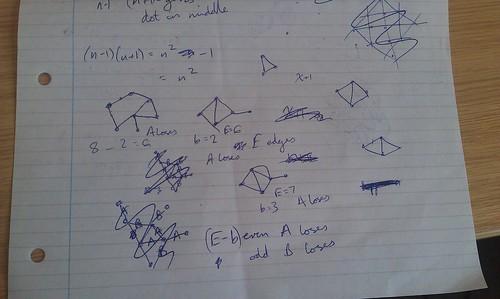 dot in middle
(n-1)(n+1) = n² - 1
= n²
x+1
8 - 2 = 6
A loses
E=6
b=2
A loses
E edges
E=7
b=3
A loses
(E-b) even A loses
odd B loses